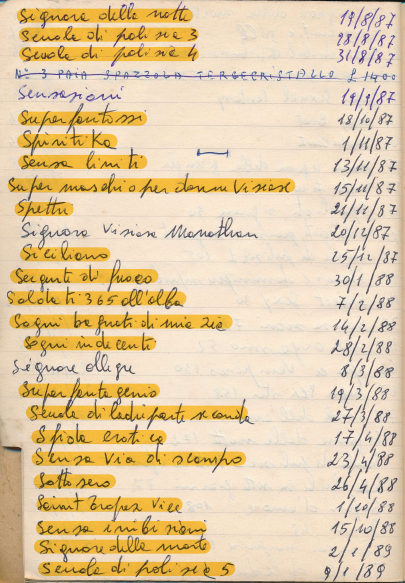 Signora della notte 19/8/87
Scuola di polizia 3 28/8/87
Scuola di polizia 4 31/8/87
N° 3 PAIA SPAZZOLA TERGECRISTALLO £ 1400
Sensazioni 19/9/87
Superfantozzi 18/10/87
Spiritika 1/11/87
Senza limiti 13/11/87
Super maschio per donne viziose 15/11/87
Spettri 21/11/87
Signora viziosa Manathan 20/12/87
Siciliano 25/12/87
Sergente di fuoco 30/1/88
Soldati 365 all'alba 7/2/88
Sogni bagnati di mia zia 14/2/88
Sogni indecenti 28/2/88
Signore allegre 8/3/88
Superfantagenio 19/3/88
Scuola di ladri parte seconda 27/3/88
Sfida erotica 17/4/88
Senza via di scampo 23/4/88
Sottozero 26/4/88
Saint Tropez Vice 1/10/88
Senza inibizioni 15/10/88
Signore della morte 2/1/89
Scuola di polizia 5 9/1/89